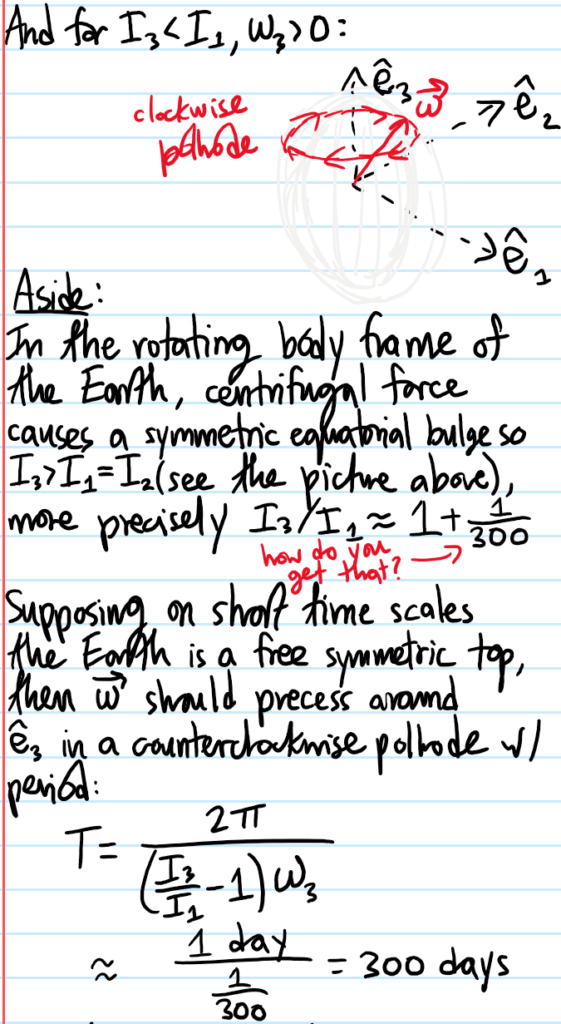 And for I₃<I₁, ω₃>0:
ê₃
ω⃗
ê₂
clockwise
polhode
ê₁
Aside:
In the rotating body frame of
the Earth, centrifugal force
causes a symmetric equatorial bulge so
I₃>I₁=I₂(see the picture above),
more precisely I₃/I₁ ≈ 1+1/300
how do you
get that? →
Supposing on short time scales
the Earth is a free symmetric top,
then ω⃗ should precess around
ê₃ in a counterclockwise polhode w/
period:
T= 2π/((I₃/I₁-1)ω₃)
≈ 1 day/(1/300) = 300 days